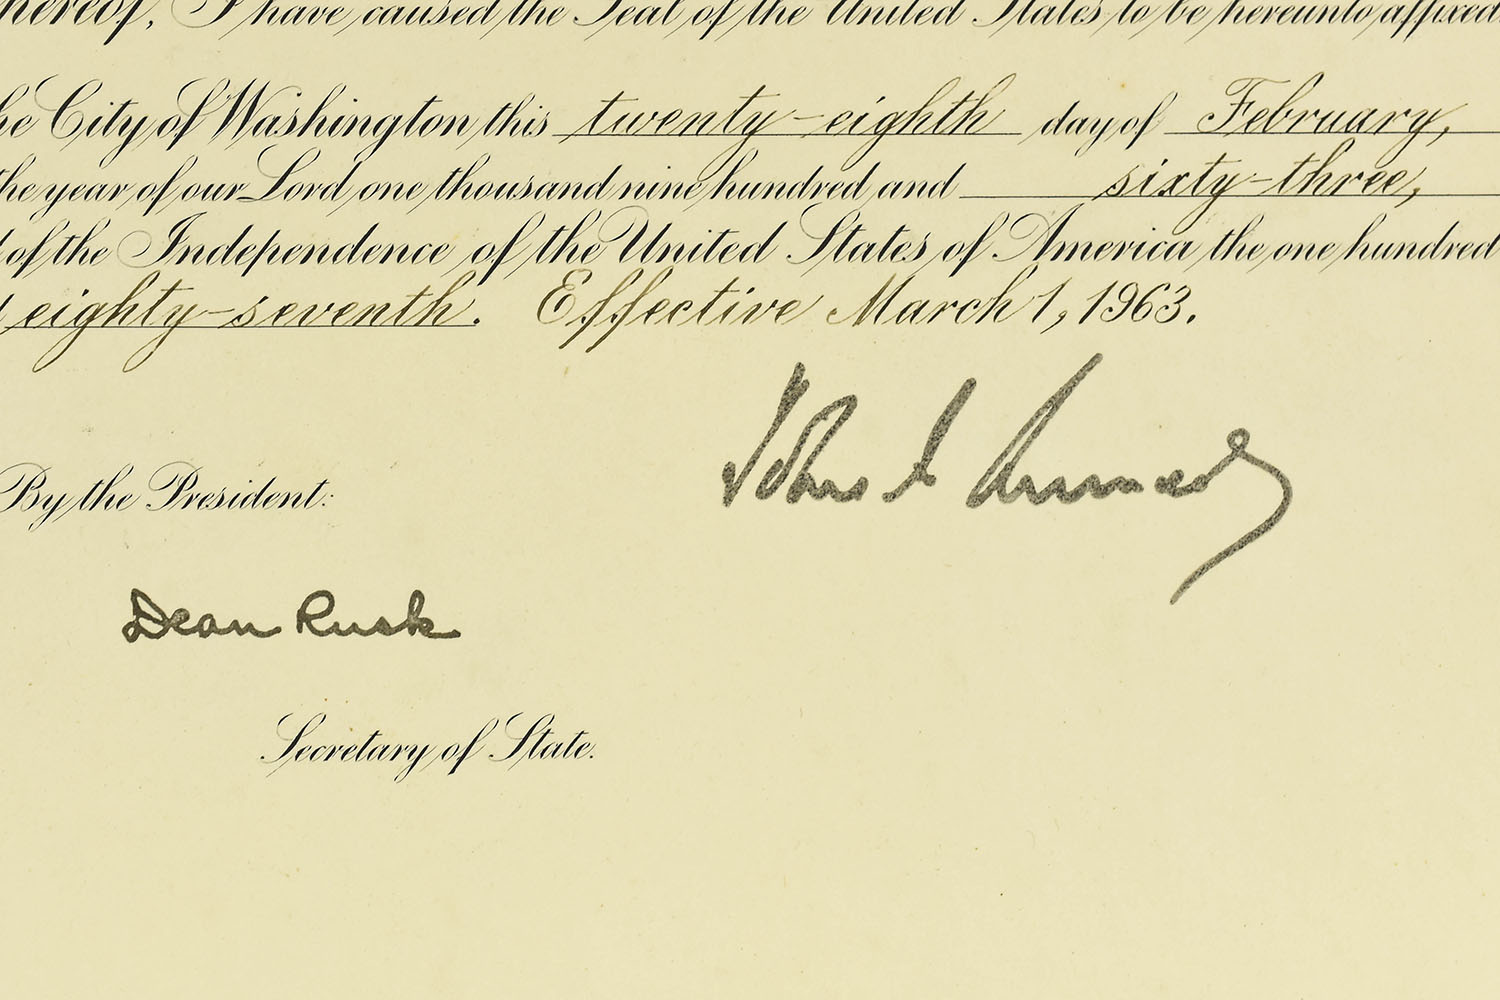 thereof, I have caused the Seal of the United States to be hereunto affixed
he City of Washington this twenty-eighth day of February,
the year of our Lord one thousand nine hundred and sixty-three,
of the Independence of the United States of America the one hundred
eighty-seventh. Effective March 1, 1963.
John F Kennedy
By the President:
Dean Rusk
Secretary of State.